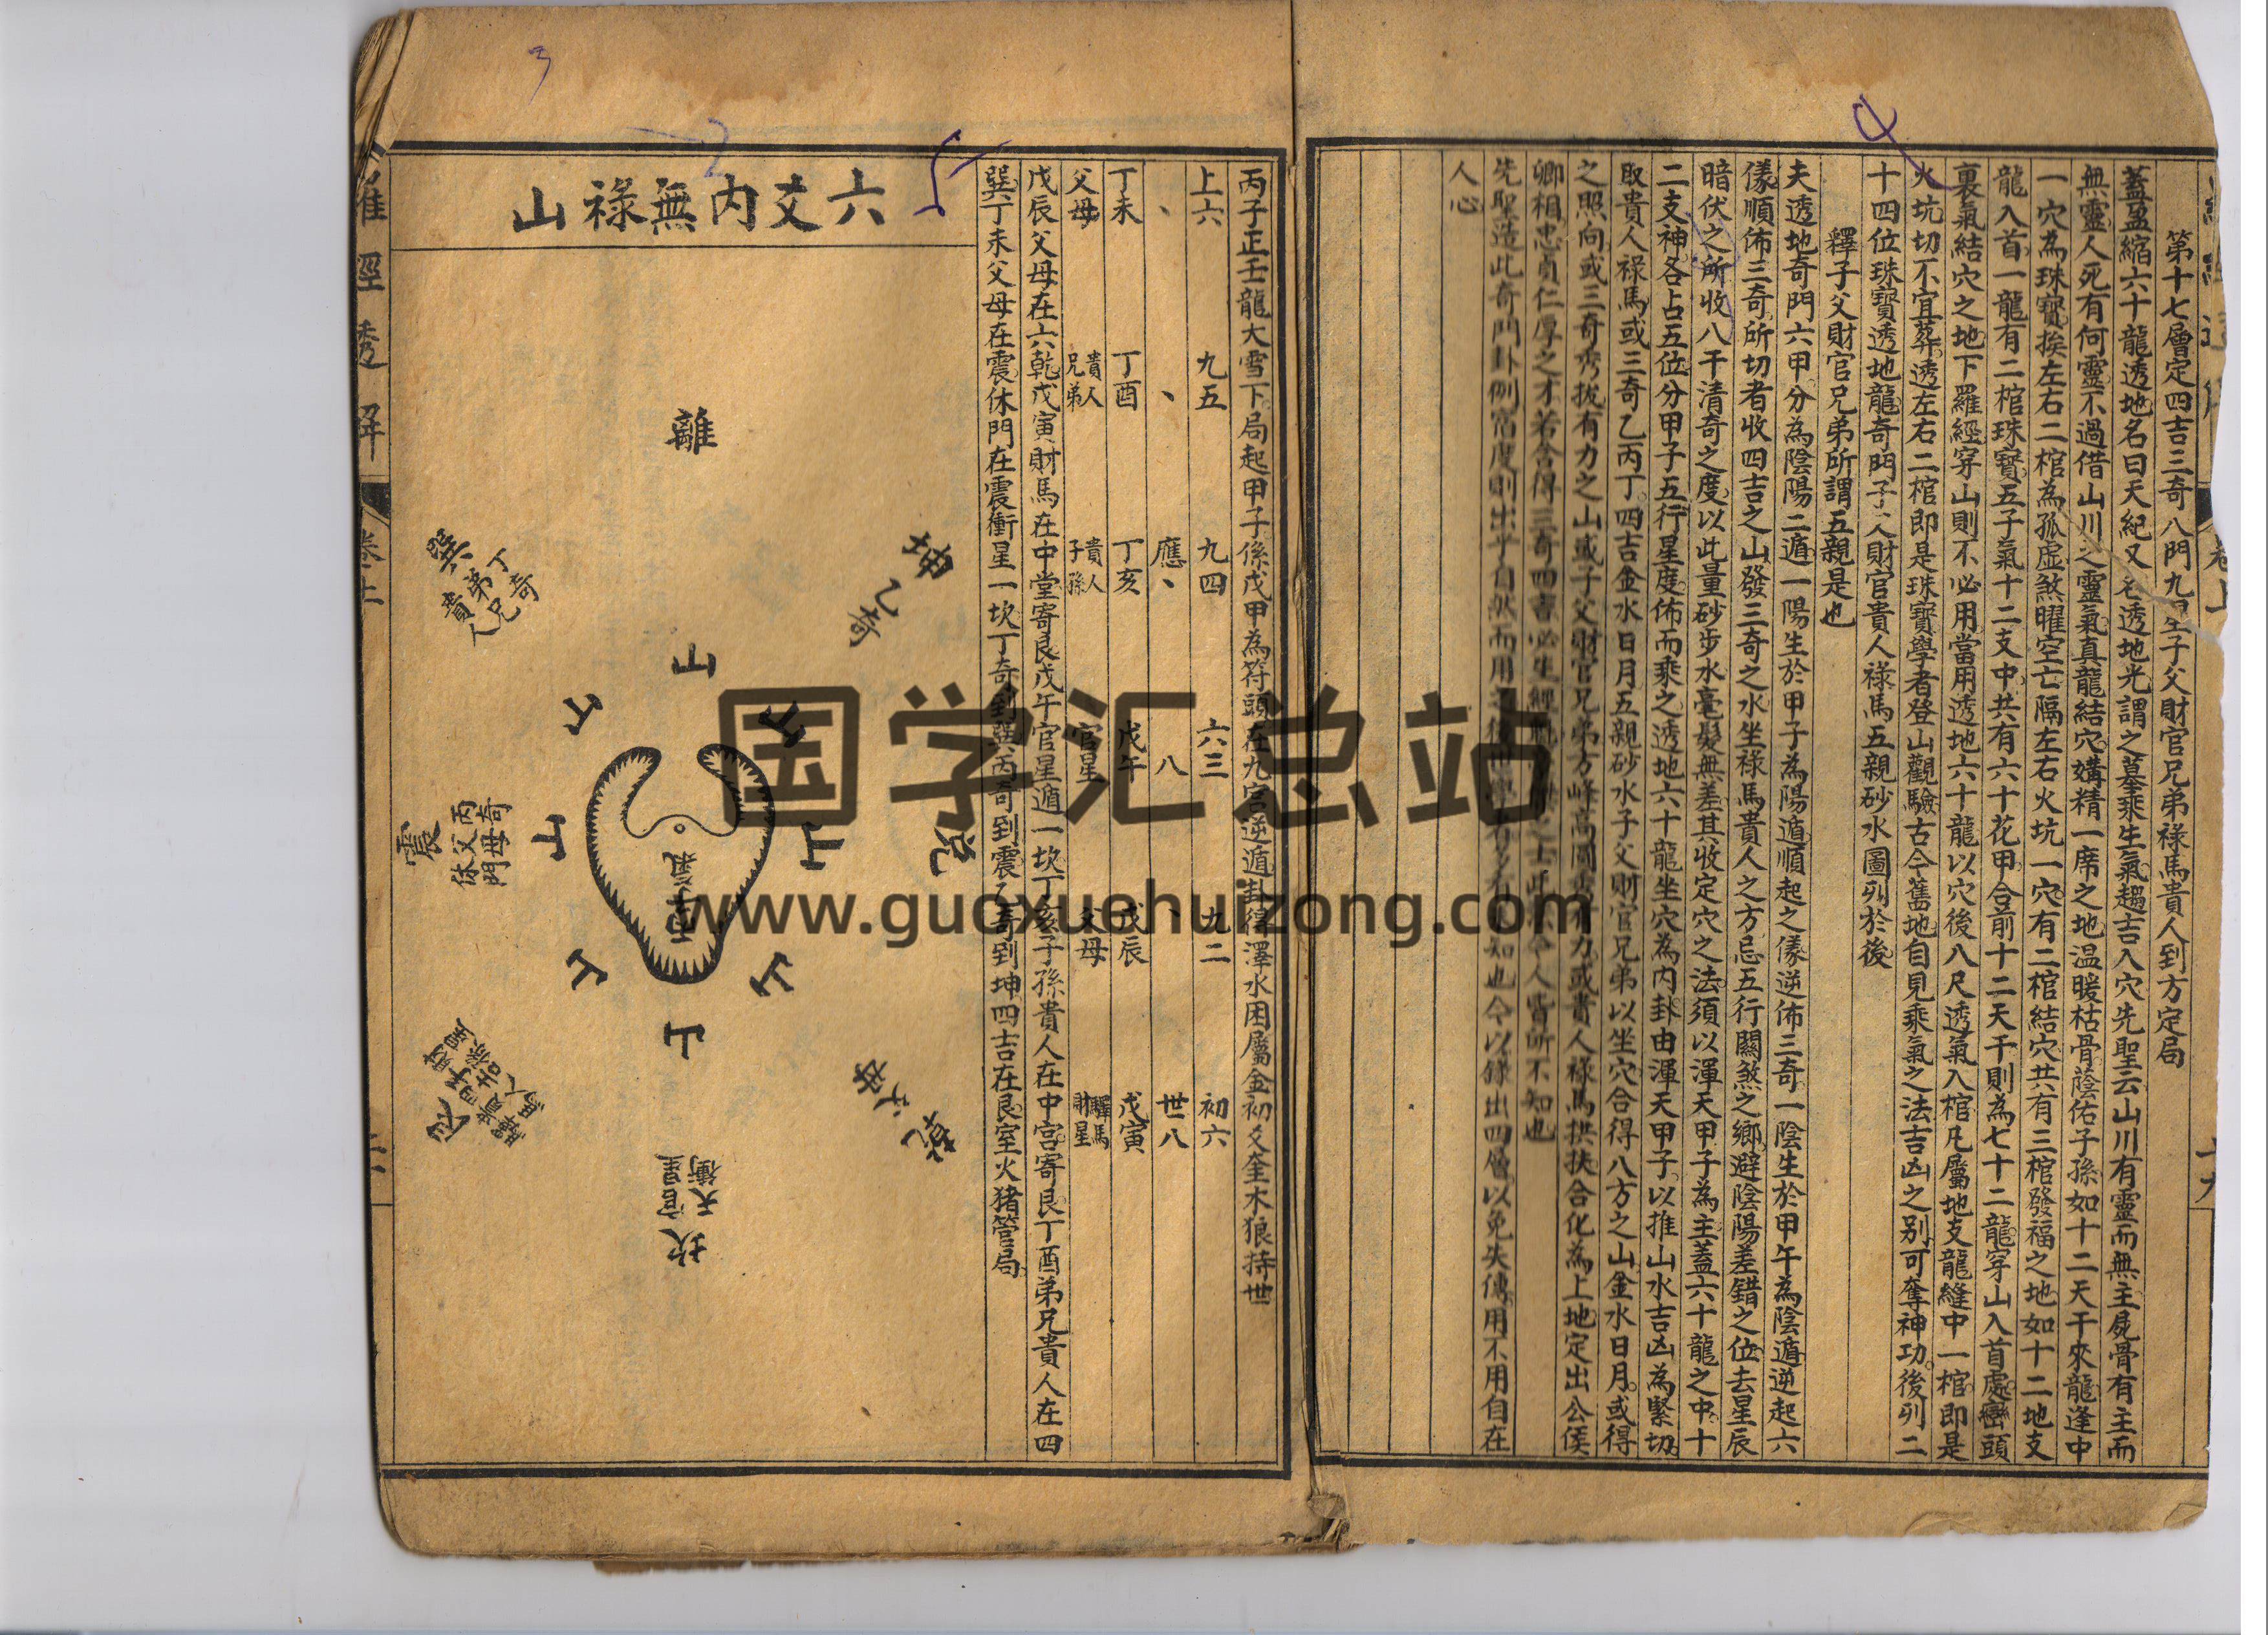 第十七層定四吉三奇八門九星子父財官兄弟祿馬貴人到方定局
蓋盈縮六十龍透地名曰天紀又名透地光謂之墓乘生氣趨吉入穴先聖云山川有靈而無主屍骨有主而
無靈人死有何靈不過借山川之靈氣真龍結穴媾精一席之地温暖枯骨蔭佑子孫如十二天干來龍逢中
一穴為珠寶挨左右二棺為孤虛煞曜空亡隔左右火坑一穴有二棺結穴共有三棺發福之地如十二地支
龍入首一龍有二棺珠寶五子氣十二支中共有六十花甲合前十二天干則為七十二龍穿山入首處巒頭
裏氣結穴之地下羅經穿山則不必用當用透地六十龍以穴後八尺透氣入棺凡屬地支龍縫中一棺即是
火坑切不宜葬透左右二棺即是珠寶學者登山觀驗古今舊地自見乘氣之法吉凶之别可奪神功後列二
十四位珠寶透地龍奇門子人財官貴人祿馬五親砂水圖列於後
釋子父財官兄弟所謂五親是也
夫透地奇門六甲分為陰陽二遁一陽生於甲子為陽遁順起之儀逆佈三奇一陰生於甲午為陰遁逆起六
儀順佈三奇所切者收四吉之山發三奇之水坐祿馬貴人之方忌五行關煞之鄉避陰陽差錯之位去星辰
暗伏之所收八干清奇之度以此量砂步水毫髮無差其收定穴之法須以渾天甲子為主蓋六十龍之中十
二支神各占五位分甲子五行星度佈而乘之透地六十龍坐穴為内卦由渾天甲子以推山水吉凶為緊切
取貴人祿馬或三奇乙丙丁四吉金水日月五親砂水子父財官兄弟以坐穴合得八方之山金水日月或得
之照向或三奇秀拔有力之山或子父財官兄弟方峰高圓秀有力或貴人祿馬拱扶合化為上地定出公侯
卿相忠貞仁厚之才若合得三奇四吉必生經
先聖造此奇門卦例宿度則出乎自然而用之後
知也今以錄出四層以免失傳用不用自在
人心
丙子正壬龍大雪下局起甲子係戊甲為符頭在九宮逆遁卦得澤水困屬金初爻奎木狼持世
上六 九五 九四 六三 九二 初六
、 、 應、 八 、 世八
丁未 丁酉 丁亥 戊午 戊辰 戊寅
父母 貴人兄弟 貴人子孫 官星 父母 驛馬財星
戊辰父母在六乾戊寅財馬在中堂寄艮戊午官星遁一坎丁亥子孫貴人在中宮寄艮丁酉弟兄貴人在四
巽丁未父母在震休門在震衝星一坎丁奇到巽丙奇到震乙奇到坤四吉在艮室火猪管局
六爻内無祿山
離
坤 乙奇
兌
乾 父母
坎 天衝官星
艮
震 丙奇父母休門
巽 丁奇弟兄貴人
山
山
山
山
山
山
山
山
丙子氣
羅經透解
卷上
国学汇总站
www.guoxuehuizong.com
3
2
5
4